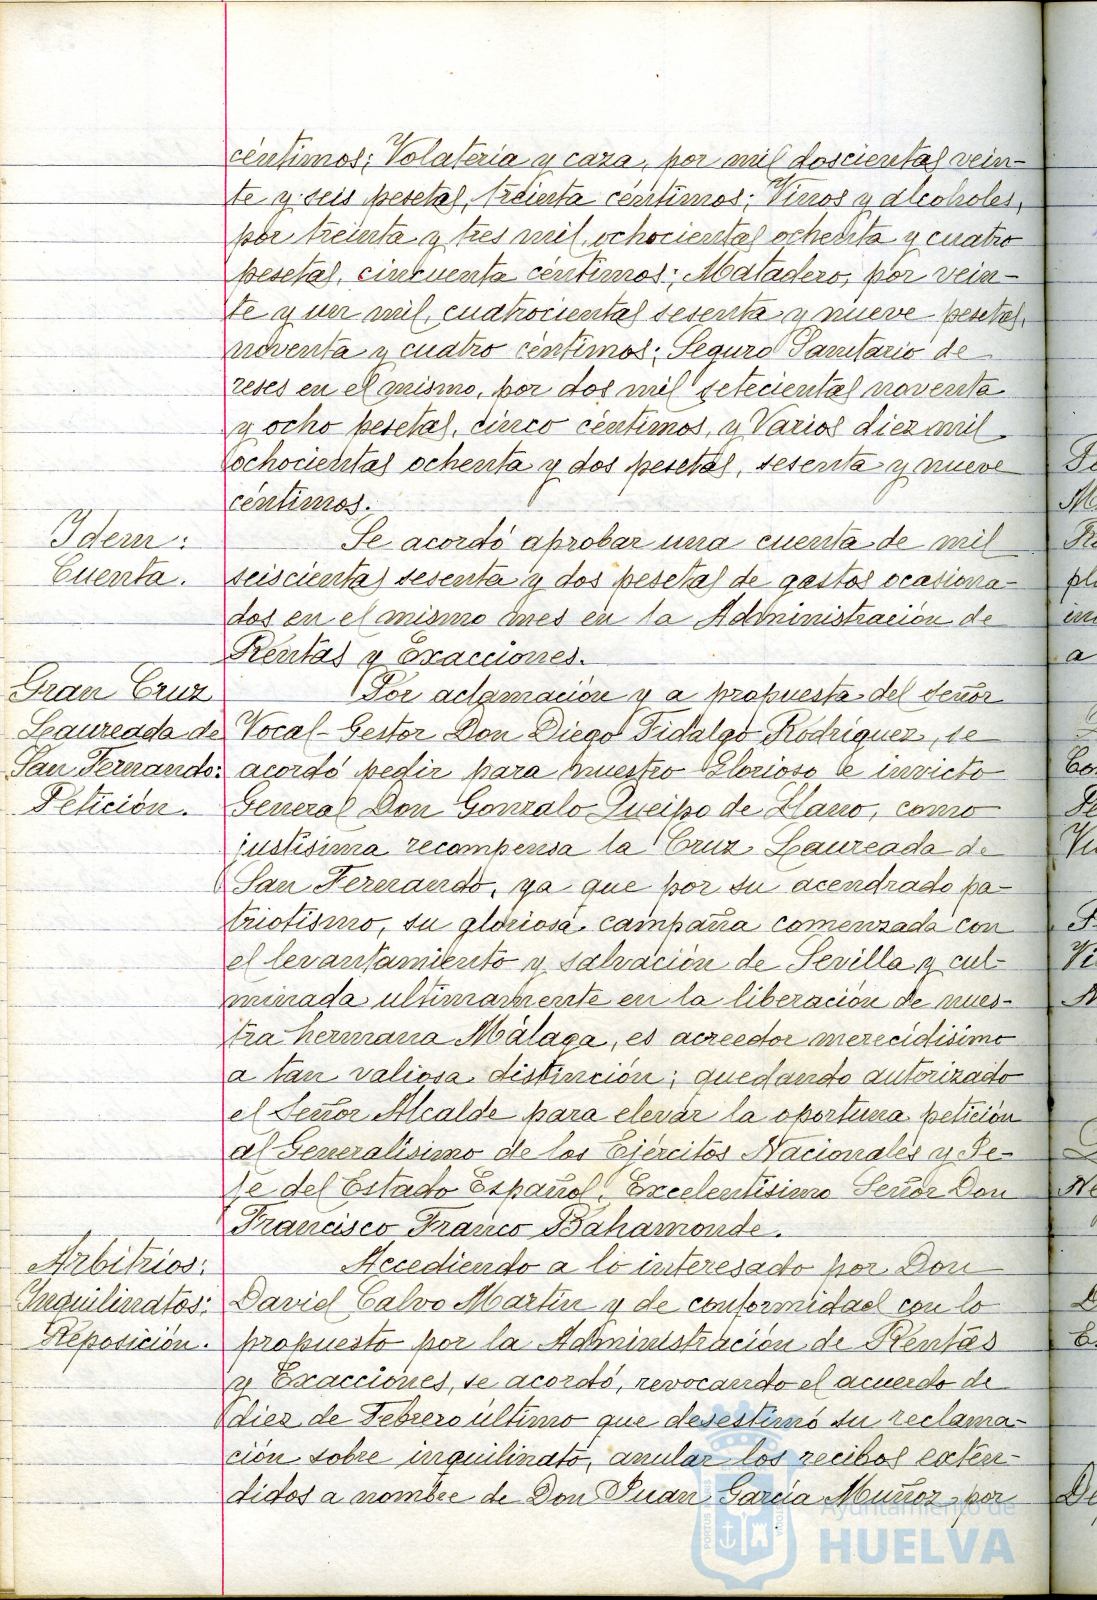 céntimos; Volatería y caza, por mil doscientas vein-
te y seis pesetas, treinta céntimos; Vinos y alcoholes,
por treinta y tres mil, ochocientas ochenta y cuatro
pesetas, cincuenta céntimos; Matadero, por vein-
te y un mil, cuatrocientas sesenta y nueve pesetas,
noventa y cuatro céntimos; Seguro Sanitario de
reses en el mismo, por dos mil setecientas noventa
y ocho pesetas, cinco céntimos, y Varios diez mil
ochocientas ochenta y dos pesetas, sesenta y nueve
céntimos.
Idem:
Cuenta.
Se acordó aprobar una cuenta de mil
seiscientas sesenta y dos pesetas de gastos ocasiona-
dos en el mismo mes en la Administración de
Rentas y Exacciones.
Gran Cruz
Laureada de
San Fernando:
Petición.
Por aclamación y a propuesta del Señor
Vocal-Gestor Don Diego Fidalgo Rodríguez, se
acordó pedir para nuestro Glorioso e invicto
General Don Gonzalo Queipo de Llano, como
justísima recompensa la Cruz Laureada de
San Fernando, ya que por su acendrado pa-
triotismo, su gloriosa campaña comenzada con
el levantamiento y salvación de Sevilla y cul-
minada ultimamente en la liberación de nues-
tra hermana Málaga, es acreedor merecidísimo
a tan valiosa distinción; quedando autorizado
el Señor Alcalde para elevar la oportuna petición
al Generalísimo de los Ejércitos Nacionales y Je-
fe del Estado Español, Excelentísimo Señor Don
Francisco Franco Bahamonde.
Arbitrios:
Inquilinatos:
Reposición.
Accediendo a lo interesado por Don
David Calvo Martín y de conformidad con lo
propuesto por la Administración de Rentas
y Exacciones, se acordó, revocando el acuerdo de
diez de Febrero último que desestimó su reclama-
ción sobre inquilinato, anular los recibos exten-
didos a nombre de Don Juan García Muñoz, por
Ayuntamiento de
HUELVA